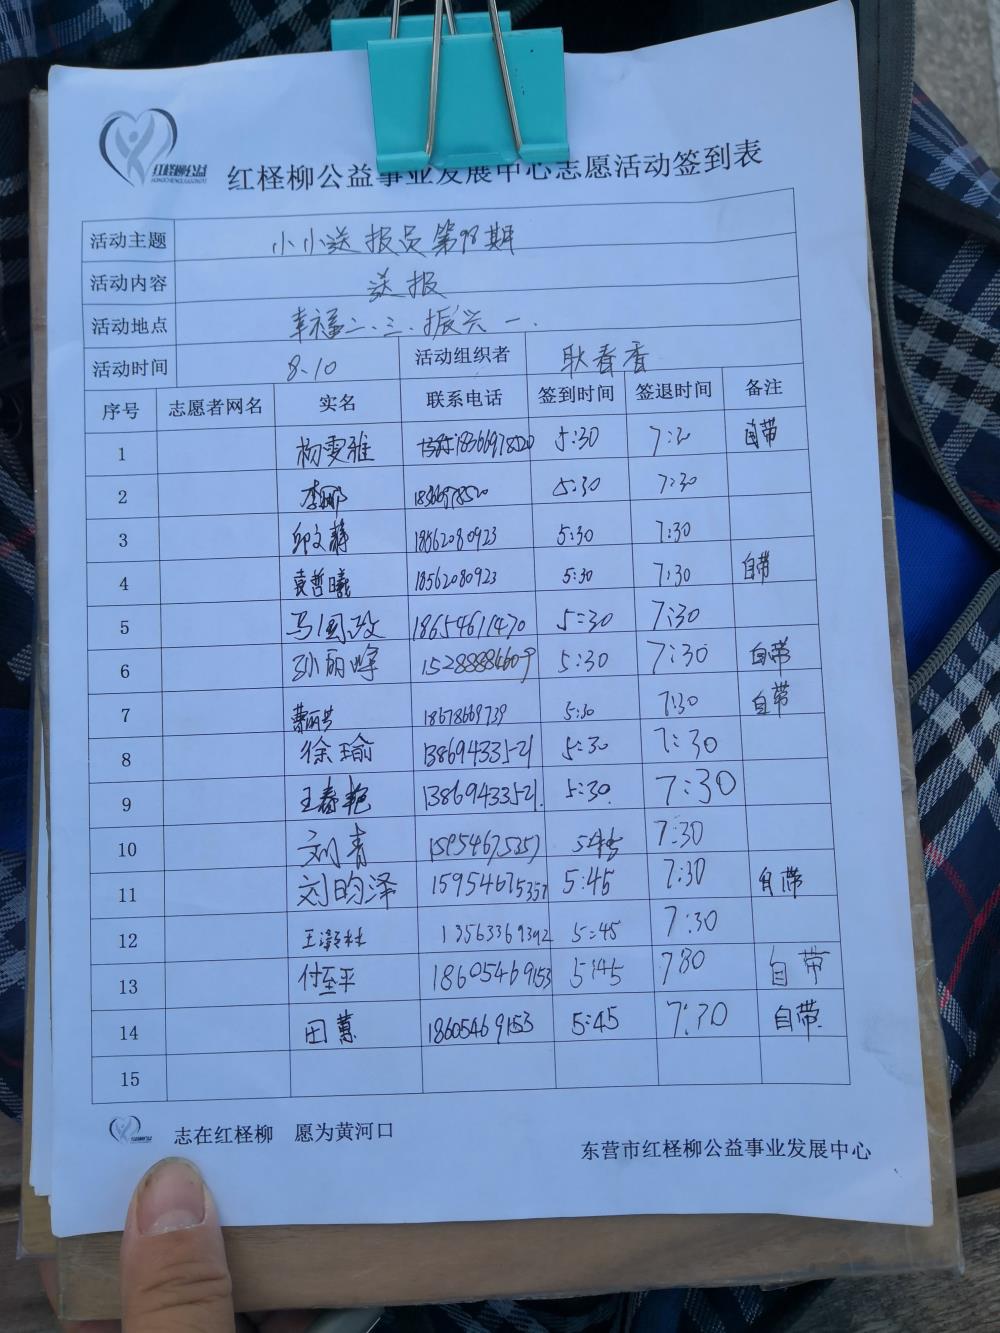 红柽柳公益
红柽柳公益事业发展中心志愿活动签到表
活动主题 小小送报员第98期
活动内容 送报
活动地点 幸福二、三、振兴一、
活动时间 8.10 活动组织者 耿春香
序号 志愿者网名 实名 联系电话 签到时间 签退时间 备注
1 杨雯雅 18366978520 5:30 自带
2 李娜 5:30 7:30
3 邱文静 18562080923 5:30 7:30
4 袁哲曦 18562080923 5:30 7:30 自带
5 马国政 18654611470 5:30 7:30
6 孙丽峰 5:30 7:30 自带
7 18678669739 5:30 7:30 自带
8 徐瑜 13869433521 5:30 7:30
9 王春艳 13869433521 5:30 7:30
10 刘青 15954675357 7:30
11 刘昀泽 15954675357 5:45 7:30 自带
12 13563369392 5:45 7:30
13 付至平 18605469153 5:45 730 自带
14 田蕙 18605469153 5:45 7:30 自带
15
志在红柽柳 愿为黄河口
东营市红柽柳公益事业发展中心